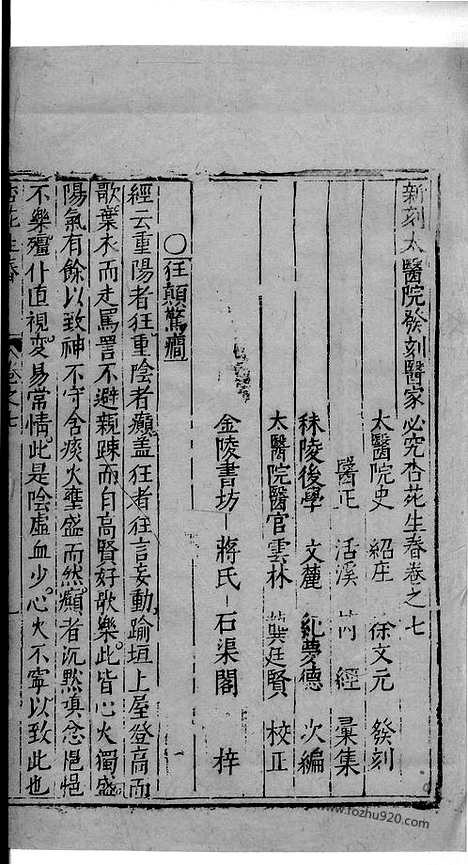 新刻太醫院發刻醫家必究杏花生春卷之七
太醫院史 紹庄 徐文元 發刻
醫正 活溪 芮經 彙集
秣陵後學 文麓 紀夢德 次編
太醫院醫官雲林 龔廷賢 校正
金陵書坊 蔣氏 石渠閣 梓
〇狂顛驚癇
經云重陽者狂重陰者癲蓋狂者狂言妄動踰垣上屋登高而
歌棄衣而走罵詈不避親踈而自高賢好歌樂此皆心火獨盛
陽氣有餘以致神不守舍痰火壅盛而然癲者沉默寡念悒悒
不樂殭仆直視変易常情此是陰虛血少心火不寧以致此也
杏花生春 卷之七 一
www.fozhu920.com